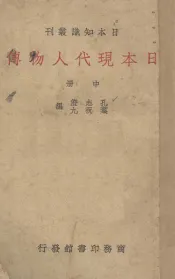 日本知識叢刊
日本現代人物傳
中冊
孔志澄
編
商務印書館發行